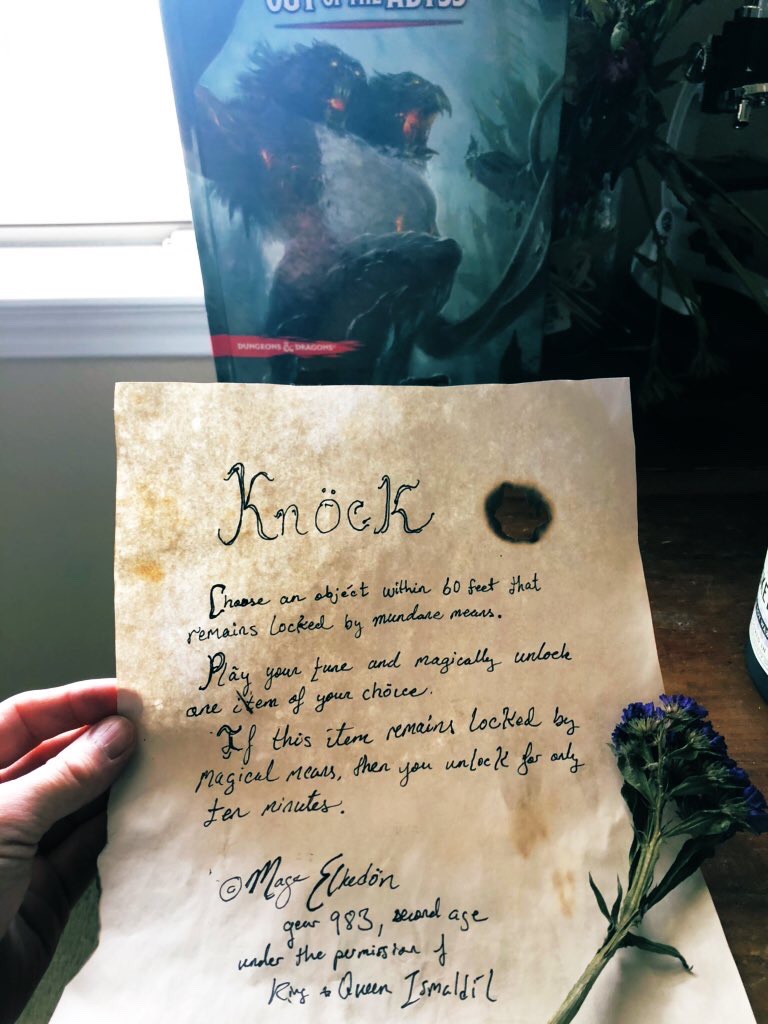 OUT OF THE ABYSS
DUNGEONS & DRAGONS
Knöck
Choose an object within 60 feet that
remains locked by mundane means.
Play your tune and magically unlock
one item of your choice.
If this item remains locked by
magical means, then you unlock for only
ten minutes.
© Mage
year 983, second age
under the permission of
King & Queen Ismaldíl